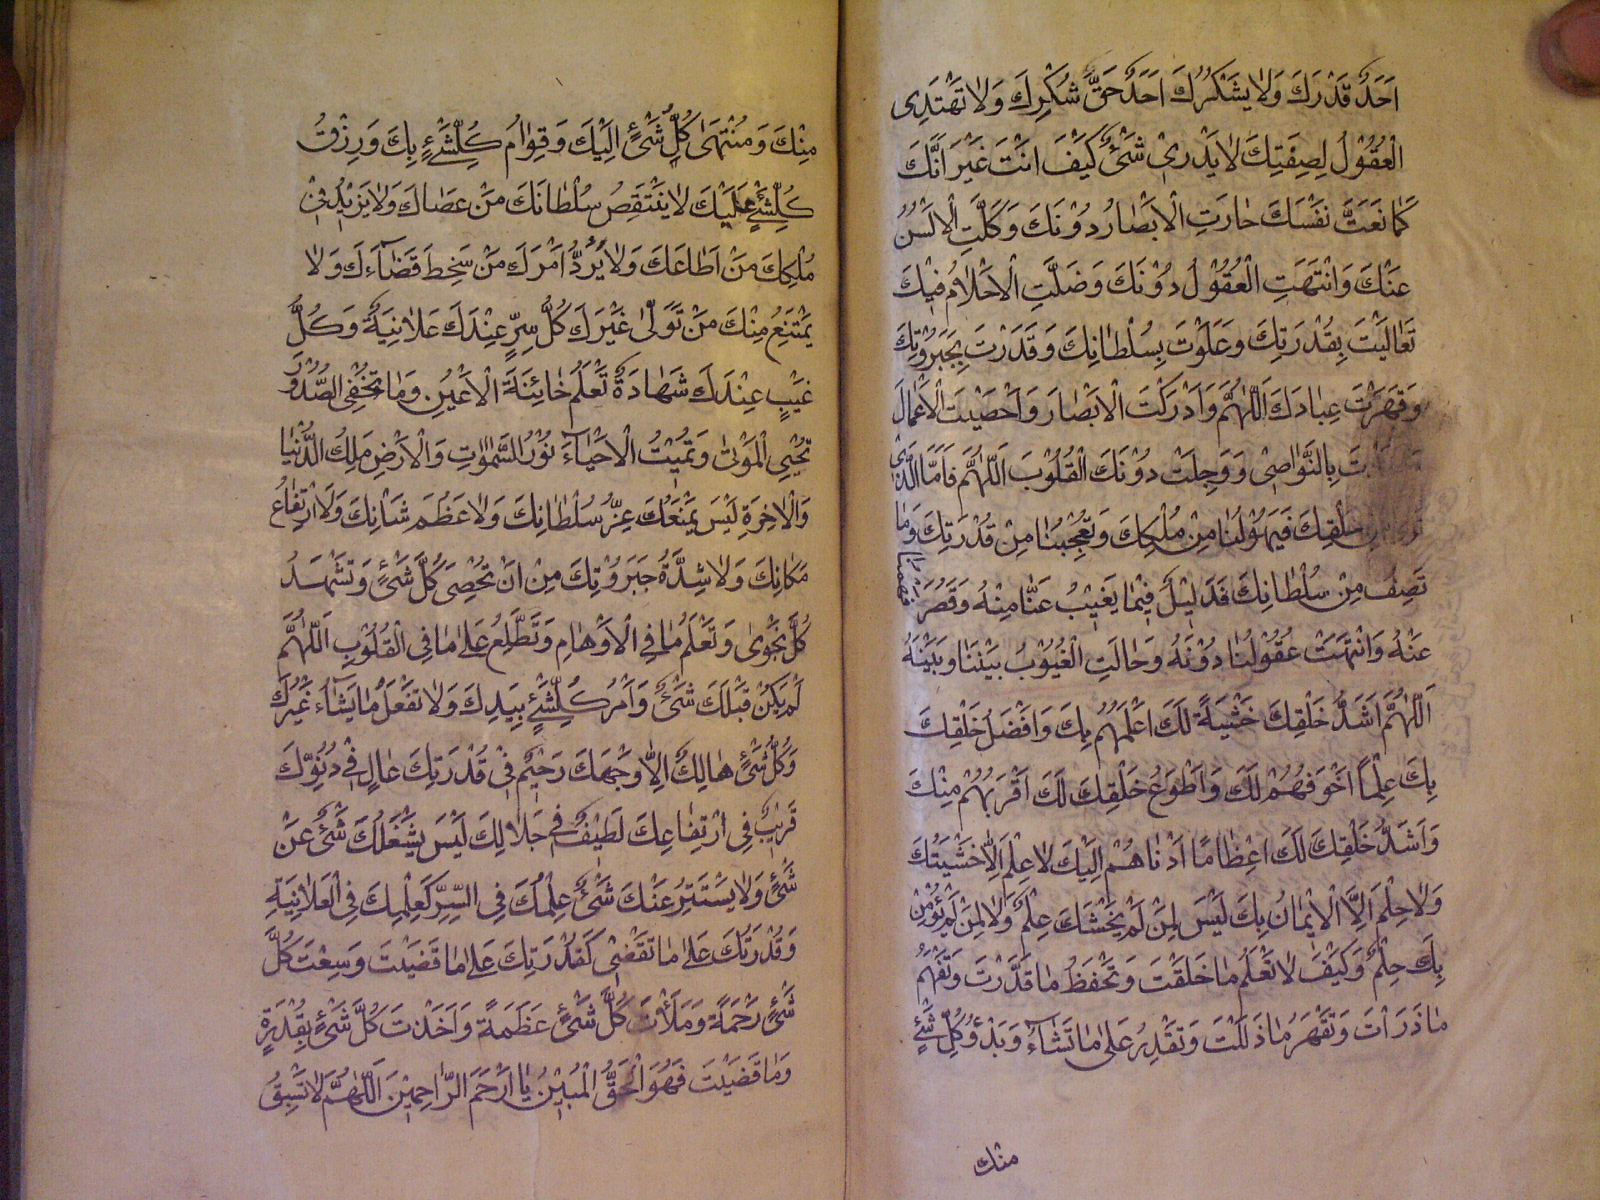 اَحَدٌ قَدْرَكَ وَلٰا يَشْكُرُكَ اَحَدٌ حَقَّ شُكْرِكَ وَلٰا تَهْتَدِى
الْعُقُوْلُ لِصِفَتِكَ لٰا يَدْرِىْ شَىْءٌ كَيْفَ اَنْتَ غَيْرَ اَنَّكَ
كَمٰا نَعَتَّ نَفْسَكَ حٰارَتِ الْاَبْصٰارُ دُوْنَكَ وَكَلَّتِ الْاَلْسُنُ
عَنْكَ وَانْتَهَتِ الْعُقُوْلُ دُوْنَكَ وَضَلَّتِ الْاَحْلٰامُ فِيْكَ
تَعٰالَيْتَ بِقُدْرَتِكَ وَعَلَوْتَ بِسُلْطٰانِكَ وَقَدَرْتَ بِجَبَرُوْتِكَ
وَقَهَرْتَ عِبٰادَكَ اَللّٰهُمَّ وَاَدْرَكْتَ الْاَبْصٰارَ وَاَحْصَيْتَ الْاَعْمٰالَ
بِالنَّوٰاصِىْ وَوَجِلَتْ دُوْنَكَ الْقُلُوْبَ اَللّٰهُمَّ فَاَمَّا الَّذِىْ
خَلْقِكَ فَيَهُوْلُنٰا مِنْ مُلْكِكَ وَتُعْجِبُنٰا مِنْ قُدْرَتِكَ وَمٰا
تَصِفُ مِنْ سُلْطٰانِكَ فَدَلِيْلٌ فِيْمٰا يَغِيْبُ عَنّٰا مِنْهُ وَقَصُرَ فَهْمُنٰا
عَنْهُ وَانْتَهَتْ عُقُوْلُنٰا دُوْنَهُ وَحٰالَتِ الْغُيُوْبُ بَيْنَنٰا وَبَيْنَهُ
اَللّٰهُمَّ اَشَدُّ خَلْقِكَ خَشْيَةً لَكَ اَعْلَمُهُمْ بِكَ وَاَفْضَلُ خَلْقِكَ
بِكَ عِلْمًا اَخْوَفُهُمْ لَكَ وَاَطْوَعُ خَلْقِكَ لَكَ اَقْرَبُهُمْ مِنْكَ
وَاَشَدُّ خَلْقِكَ لَكَ اِعْظٰامًا اَدْنٰاهُمْ اِلَيْكَ لٰا عِلْمَ اِلّٰا خَشْيَتُكَ
وَلٰا حِلْمَ اِلَّا الْاِيْمٰانُ بِكَ لَيْسَ لِمَنْ لَمْ يَخْشَكَ عِلْمٌ وَلٰا لِمَنْ لَمْ يُؤْمِنْ
بِكَ حِلْمٌ وَكَيْفَ لٰا تَعْلَمُ مٰا خَلَقْتَ وَتَحْفَظُ مٰا قَدَّرْتَ وَتَفْهَمُ
مٰا ذَرَاْتَ وَتَقْهَرُ مٰا ذَلَّلْتَ وَتَقْدِرُ عَلٰى مٰا تَشٰآءُ وَبَدْؤُ كُلِّ شَىْءٍ
منك
مِنْكَ وَمُنْتَهٰى كُلِّ شَىْءٍ اِلَيْكَ وَقِوٰامُ كُلِّ شَىْءٍ بِكَ وَرِزْقُ
كُلِّ شَىْءٍ عَلَيْكَ لٰا يَنْتَقِصُ سُلْطٰانَكَ مَنْ عَصٰاكَ وَلٰا يَزِيْدُ فِىْ
مُلْكِكَ مَنْ اَطٰاعَكَ وَلٰا يَرُدُّ اَمْرَكَ مَنْ سَخِطَ قَضٰآءَكَ وَلٰا
يَمْتَنِعُ مِنْكَ مَنْ تَوَلّٰى غَيْرَكَ كُلُّ سِرٍّ عِنْدَكَ عَلٰانِيَةٌ وَكُلُّ
غَيْبٍ عِنْدَكَ شَهٰادَةٌ تَعْلَمُ خٰائِنَةَ الْاَعْيُنِ وَمٰا تُخْفِى الصُّدُوْرُ
تُحْيِى الْمَوْتٰى وَتُمِيْتُ الْاَحْيٰآءَ نُوْرُ السَّمٰوٰاتِ وَالْاَرْضِ مَلِكُ الدُّنْيٰا
وَالْاٰخِرَةِ لَيْسَ يَمْنَعُكَ عِزُّ سُلْطٰانِكَ وَلٰا عَظُمَ شَاْنِكَ وَلَا ارْتِفٰاعُ
مَكٰانِكَ وَلٰا شِدَّةُ جَبَرُوْتِكَ مِنْ اَنْ تُحْصِىَ كُلَّ شَىْءٍ وَتَشْهَدُ
كُلَّ نَجْوٰى وَتَعْلَمُ مٰا فِى الْاَوْهٰامِ وَتَطَّلِعُ عَلٰى مٰا فِى الْقُلُوْبِ اَللّٰهُمَّ
لَمْ يَكُنْ قَبْلَكَ شَىْءٌ وَاَمْرُ كُلِّ شَىْءٍ بِيَدِكَ وَلٰا تَفْعَلُ مٰا يَشٰآءُ غَيْرُكَ
وَكُلُّ شَىْءٍ هٰالِكٌ اِلّٰا وَجْهَكَ رَحِيْمٌ فِىْ قُدْرَتِكَ عٰالٍ فِىْ دُنُوِّكَ
قَرِيْبٌ فِى ارْتِفٰاعِكَ لَطِيْفٌ فِىْ جَلٰالِكَ لَيْسَ يَشْغَلُكَ شَىْءٌ عَنْ
شَىْءٍ وَلٰا يَسْتَتِرُ عَنْكَ شَىْءٌ عِلْمُكَ فِى السِّرِّ كَعِلْمِكَ فِى الْعَلٰانِيَةِ
وَقُدْرَتُكَ عَلٰى مٰا تَقْضِىْ كَقُدْرَتِكَ عَلٰى مٰا قَضَيْتَ وَسِعْتَ كُلَّ
شَىْءٍ رَحْمَةً وَمَلَأْتَ كُلَّ شَىْءٍ عَظَمَةً وَاَخَذْتَ كُلَّ شَىْءٍ بِقُدْرَةٍ
وَمٰا قَضَيْتَ فَهُوَ الْحَقُّ الْمُبِيْنُ يٰا اَرْحَمَ الرّٰاحِمِيْنَ اَللّٰهُمَّ لٰا تَسْبِقُ